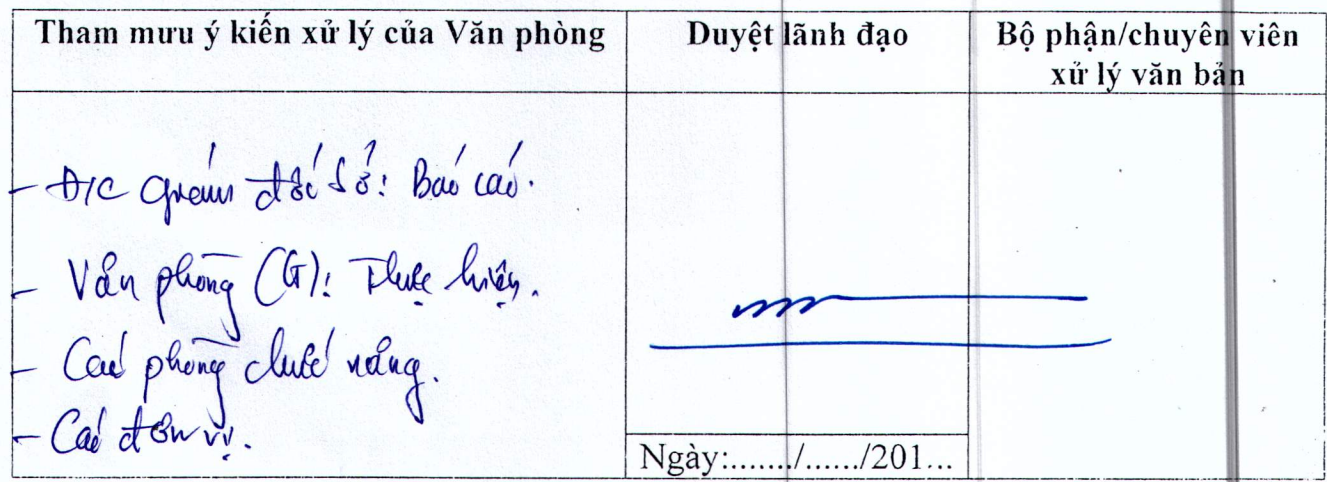 Tham mưu ý kiến xử lý của Văn phòng
Duyệt lãnh đạo
Bộ phận/chuyên viên
xử lý văn bản
- Đ/c Giám đốc Sở: Báo cáo.
- Văn phòng (G): Thực hiện.
- Các phòng chức năng.
- Các đơn vị.
Ngày:......./....../201...